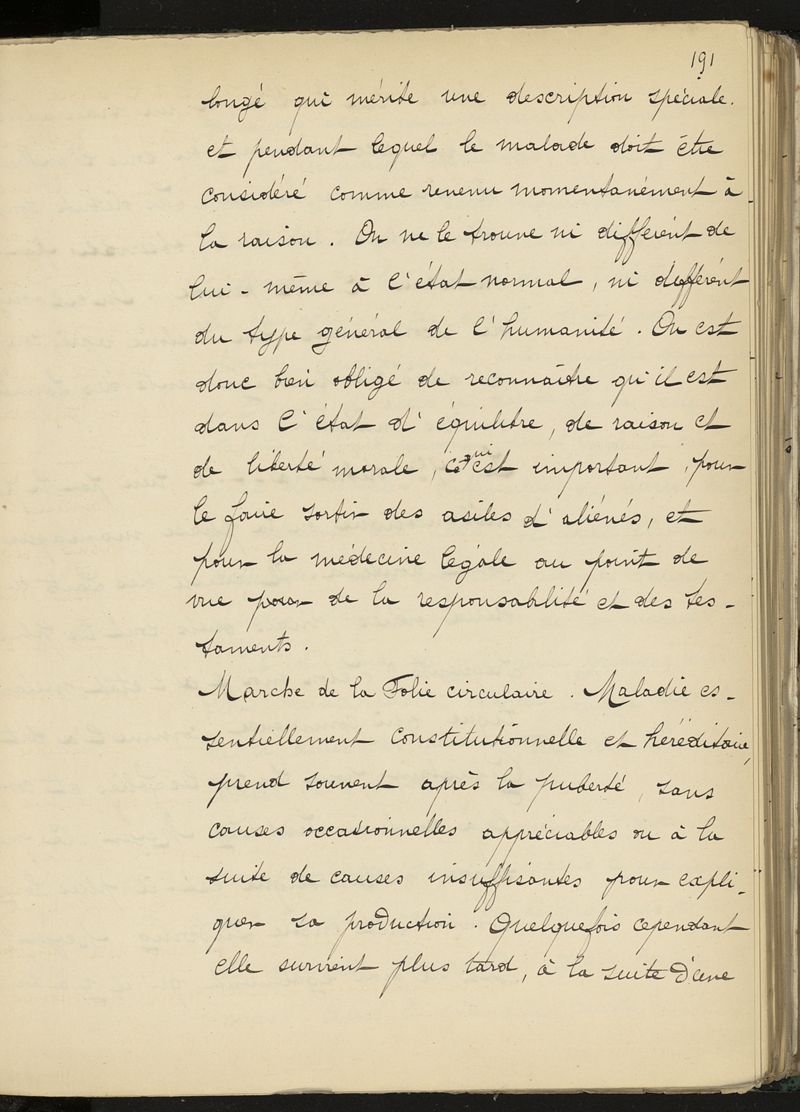 191
longé qui mérite une description spéciale.
et pendant lequel le malade doit être
considéré comme revenu momentanément à
la raison. On ne le trouve ni différent de
lui-même à l'état normal, ni différent
du type général de l'humanité. On est
donc bien obligé de reconnaître qu'il est
dans l'état d'équilibre, de raison et
de liberté morale, ce qui est important, pour
le faire sortir des asiles d'aliénés, et
pour la médecine légale au point de
vue de la responsabilité et des tes-
taments.
Marche de la Folie circulaire. Maladie es-
sentiellement constitutionnelle et héréditaire,
prend souvent après la puberté, sans
causes occasionnelles appréciables ou à la
suite de causes insuffisantes pour expli-
quer sa production. Quelquefois cependant
elle survient plus tard, à la suite d'une